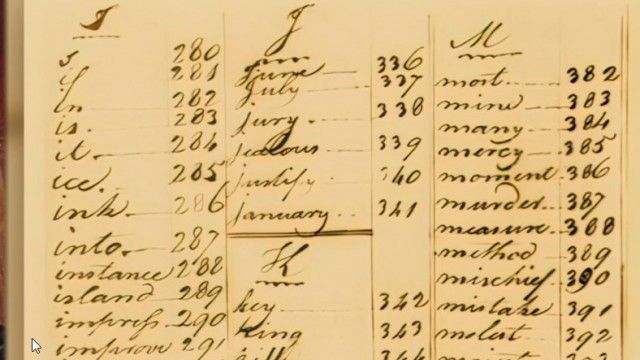 I
280
if 281
In 282
is. 283
it. 284
ice. 285
ink 286
into. 287
instance 288
island 289
impress. 290
improve 291
J
June 336
July 337
jury. 338
jealous 339
justify. 340
january 341
K
key 342
King 343
kill 344
M
most 382
mine 383
many 384
mercy 385
moment 386
murder 387
measure 388
method 389
mischief 390
mistake 391
molest 392